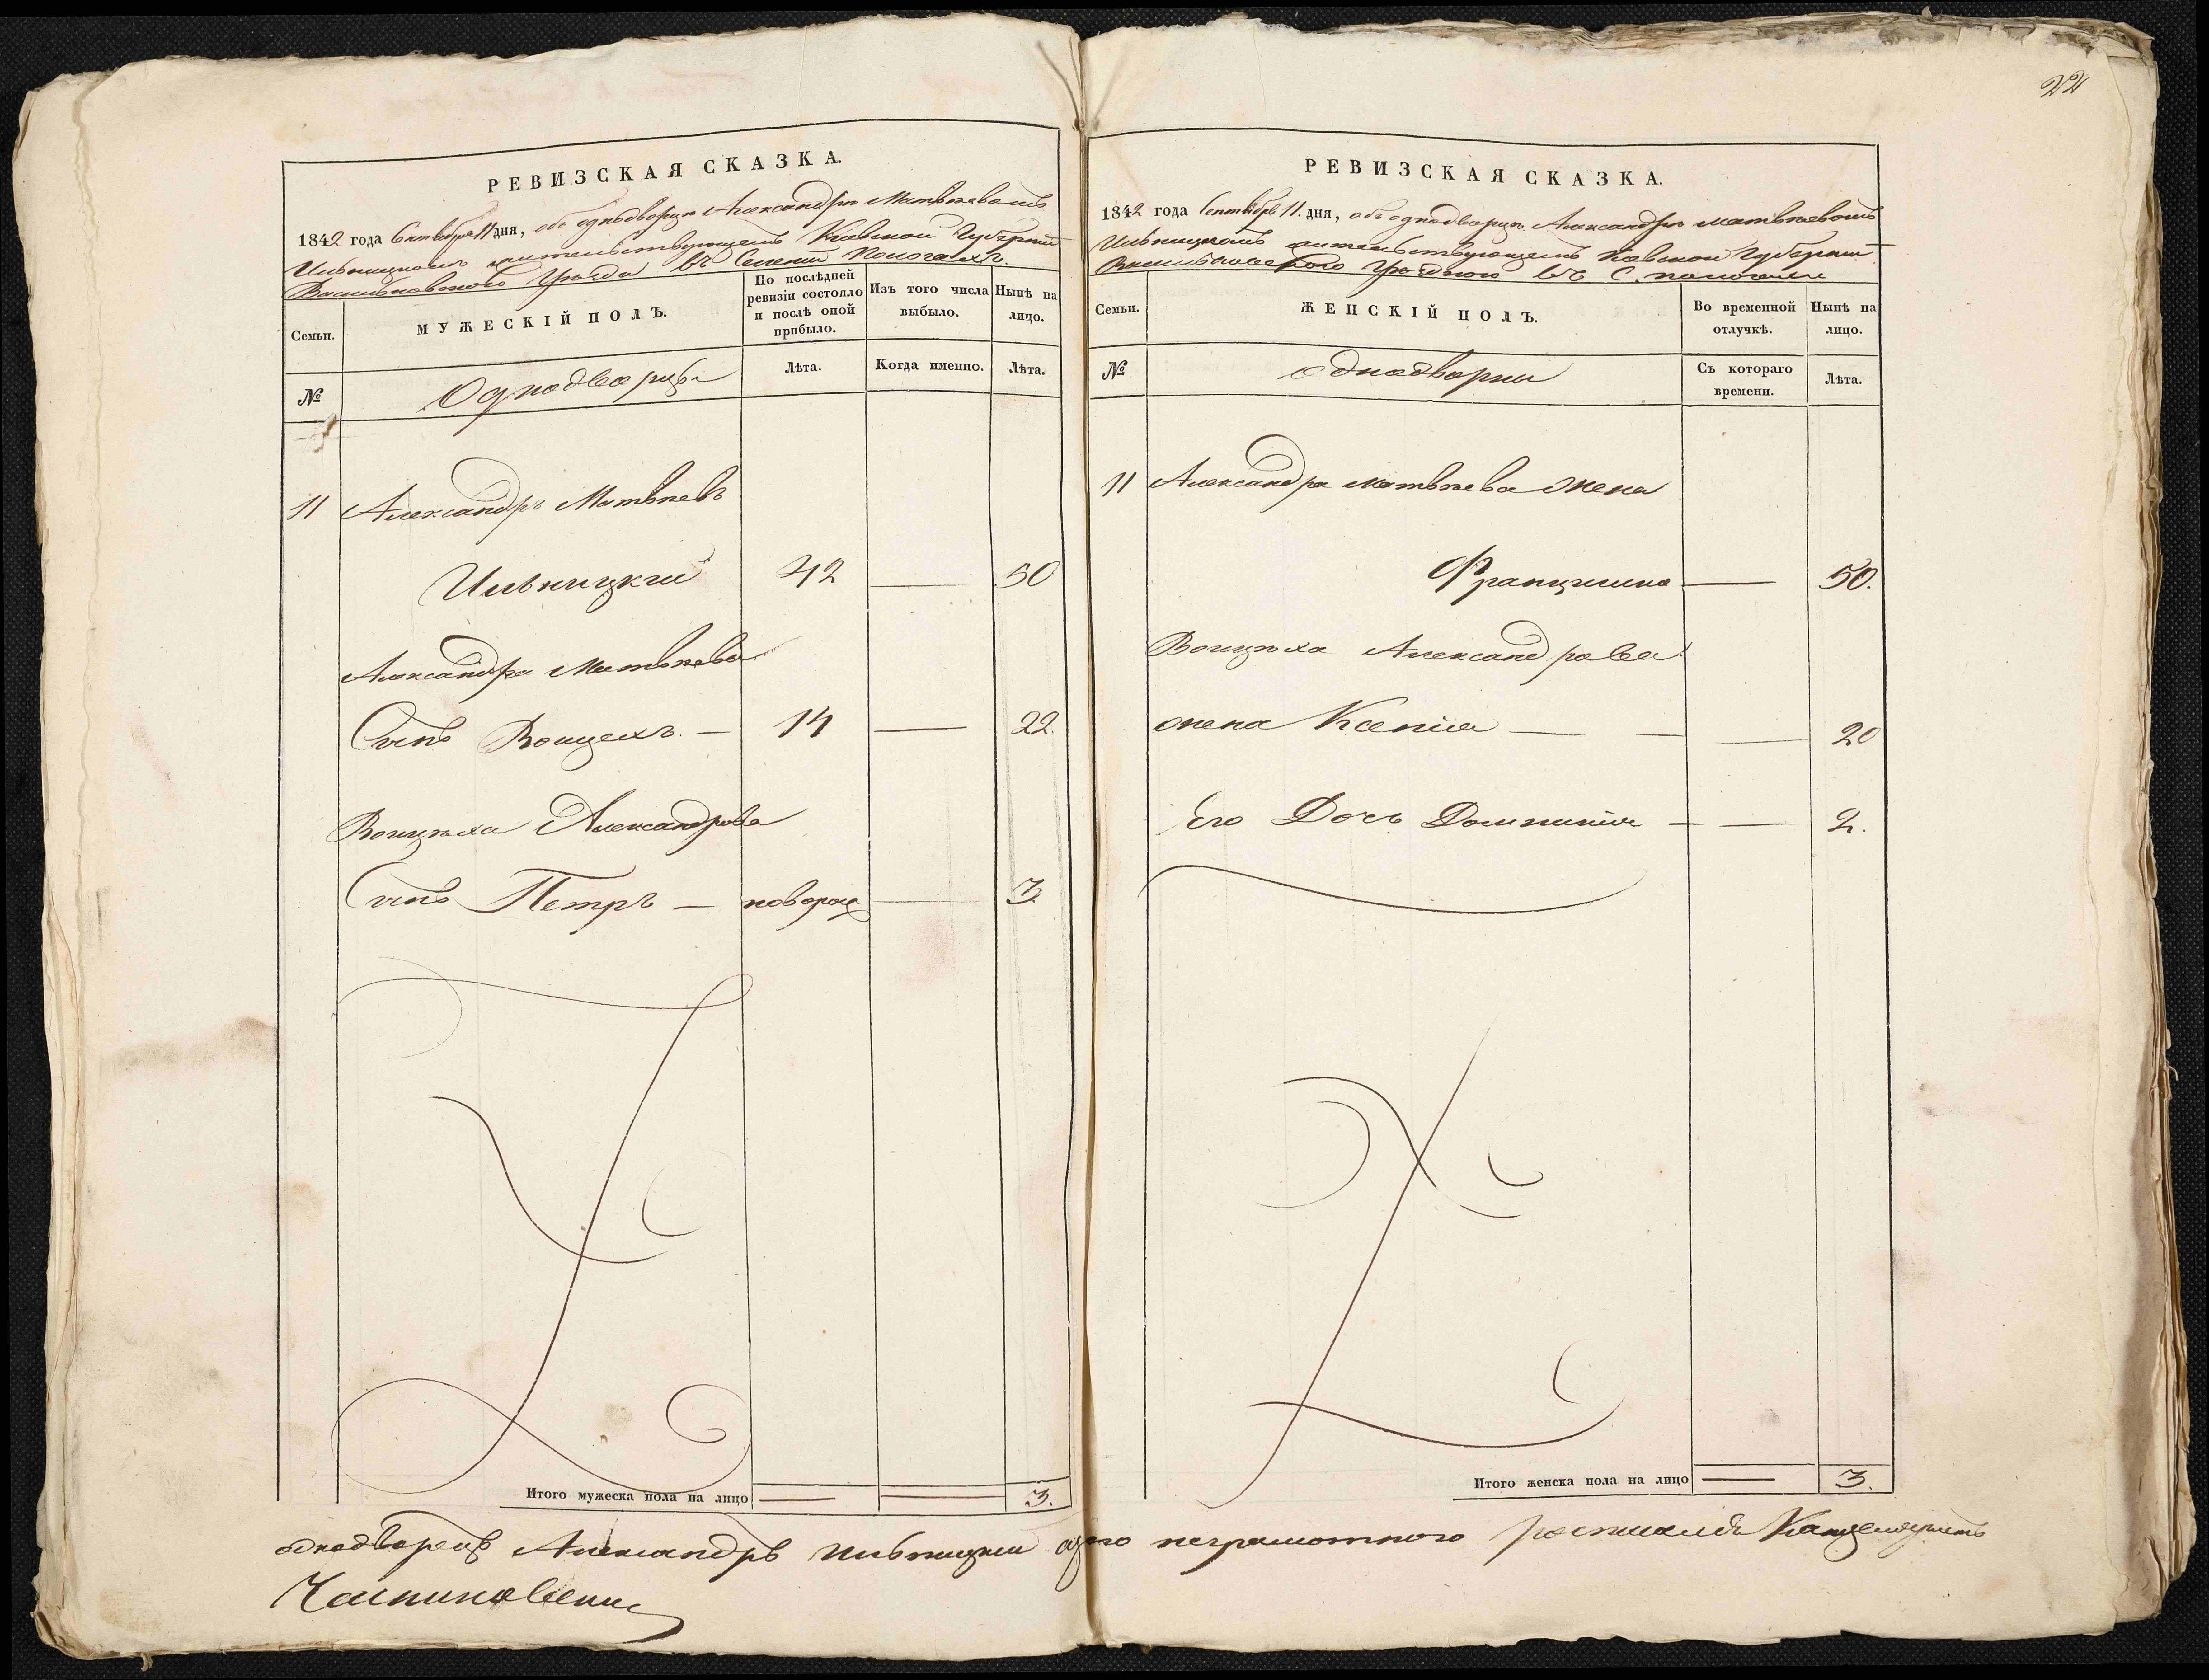 22
РЕВИЗСКАЯ СКАЗКА.
1842 года Сентября 11 дня, объ однодворцѣ Александрѣ Матвѣевомъ
жительствующемъ Кіевской Губерніи
Васильковскаго Уѣзда въ Селеніи Пологахъ.
Семьи.
МУЖЕСКІЙ ПОЛЪ.
По послѣдней ревизіи состояло и послѣ оной прибыло.
Изъ того числа выбыло.
Нынѣ на лицо.
№
Однодворцы
Лѣта.
Когда именно.
Лѣта.
11 Александръ Матвѣевъ
42 — 50
Александра Матвѣева
Сынъ Воицехъ. — 14 — 22.
Воицѣха Александрова
Сынъ Петръ — новорож — 3.
Итого мужеска пола на лицо — — 3.
РЕВИЗСКАЯ СКАЗКА.
1842 года Сентября 11. дня, объ однодворцѣ Александрѣ Матвѣевомъ
жительствующемъ Кіевской Губерніи
въ С.
Семьи.
ЖЕНСКІЙ ПОЛЪ.
Во временной отлучкѣ.
Нынѣ на лицо.
№
однодворки
Съ котораго времени.
Лѣта.
11 Александра Матвѣева жена
Францишка — 50.
Воицѣха Александрова
жена Ксенія — — — 20
Его Дочь Домникія — — 2.
Итого женска пола на лицо — 3.
однодворецъ Александръ а за его неграмотного росписался